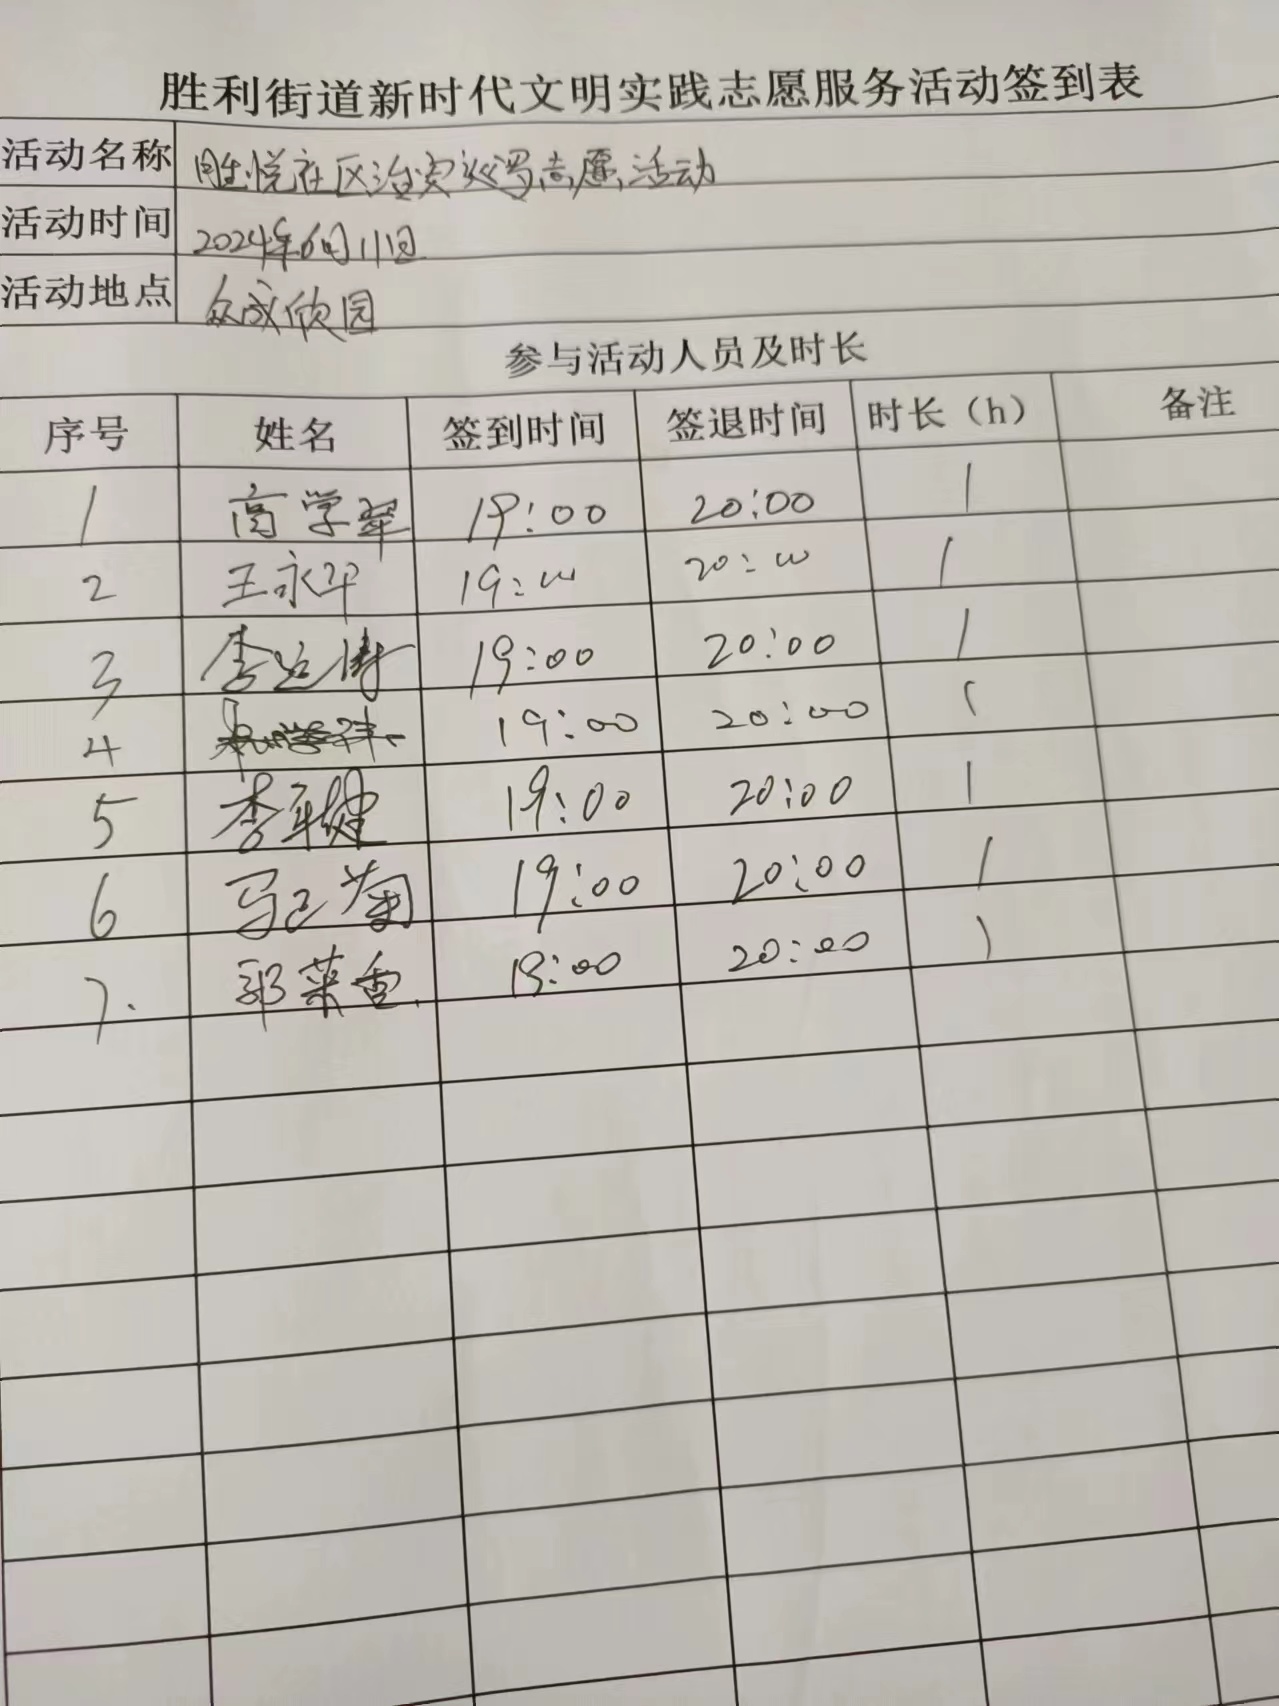 胜利街道新时代文明实践志愿服务活动签到表
活动名称 悦社区治安巡逻志愿活动
活动时间 2024年6月11日
活动地点 众成欣园
参与活动人员及时长
序号 姓名 签到时间 签退时间 时长（h） 备注
1 高学翠 19:00 20:00 1
2 王永华 19:00 20:00 1
3 李 19:00 20:00 1
4 19:00 20:00 1
5 李军健 19:00 20:00 1
6 马菊 19:00 20:00 1
7. 郭荣香 19:00 20:00 1